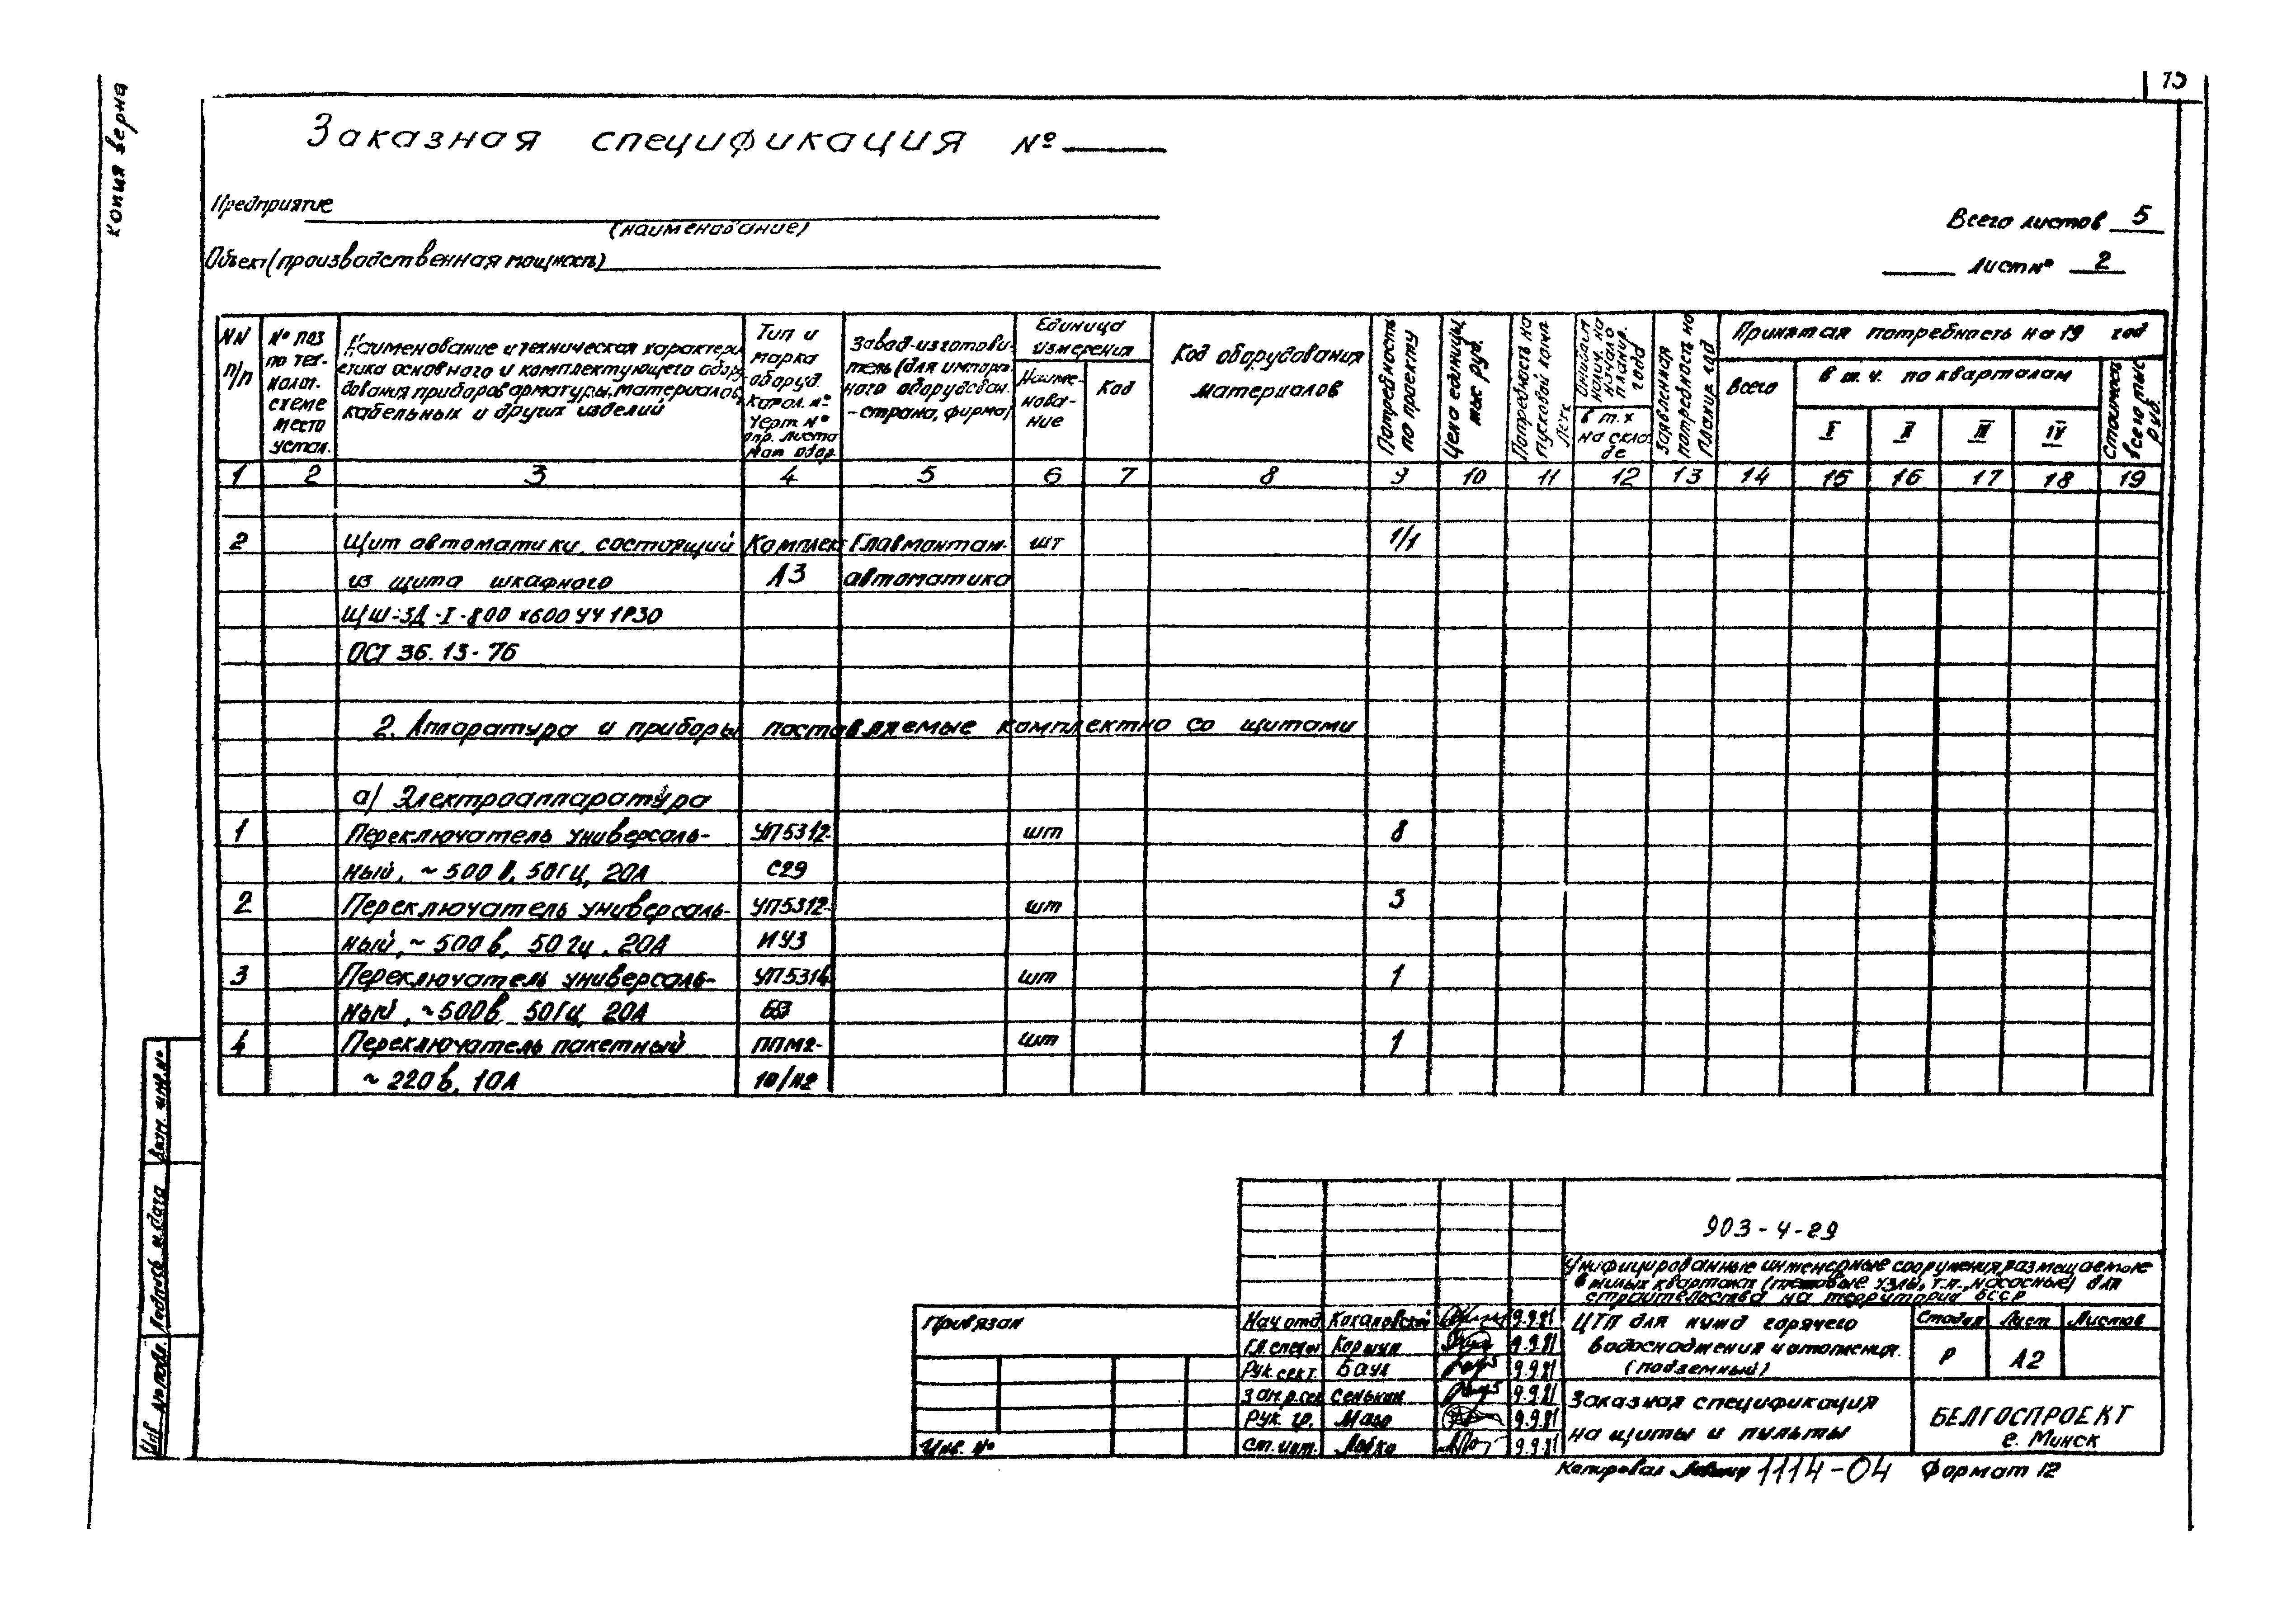 Копия верна
Заказная спецификация №
Предприятие
(наименование)
Объект (производственная мощность)
Всего листов 5
Лист № 2
NN п/п
№ поз по тех-
нолог.
схеме
место
устан.
Наименование и техническая характери
стика основного и комплектующего обору
дования приборов арматуры, материалов,
кабельных и других изделий
Тип и
марка
оборуд.
катол. №
черт. №
опр. листа
мат обор
Завод-изготови-
тель (для импорт
ного оборудован.
-страна, фирма)
Единица
измерения
Наиме-
нова-
ние
Код
Код оборудования
материалов
Потребность
по проекту
Цена единицы
тыс руб.
Потребность на
пусковой комп
Ожидаем
налич. на
начало
планир.
года
в т.ч
на скла
де
Заявленная
потребность на
планир год
Принятая потребность на 19 год
всего
в т.ч. по кварталам
I II III IV
Стоимость
всего тыс
руб.
1 2 3 4 5 6 7 8 9 10 11 12 13 14 15 16 17 18 19
2 Щит автоматики, состоящий Комплек Главмонтаж- шт 1/1
из щита шкафного А3 автоматика
ЩШ-ЗД-I-800 х600 УЧ 1Р30
ОСТ 36.13-76
2. Аппаратура и приборы поставляемые комплектно со щитами
а/ Электроаппаратура
1 Переключатель универсаль- УП5312- шт 8
ный, ~500 В, 50 Гц, 20А С29
2 Переключатель универсаль- УП5312- шт 3
ный, ~ 500 в, 50 гц, 20А
3 Переключатель универсаль- шт 1
ный, ~500в 50Гц 20А
4 Переключатель пакетный ППМ2- шт 1
~ 220 в, 10А 10/Н2
Взам. инв. №
Подпись и дата
Инв № подл.
903-4-29
Унифицированные инженерные сооружения, размещаемые
в жилых кварталах (тепловые узлы, т.п., насосные) для
строительства на территории БССР
Привязан
Инв. №
Нач отд Кохановский 9.9.81
Гл. спец 9.9.81
Рук. сект. Баул 9.9.81
Зам.р.сек Сенькин 9.9.81
Рук. гр. Мазо 9.9.81
Ст. инж. Лобко 9.9.81
ЦТП для нужд горячего
водоснабжения и отопления.
(подземный)
Стадия Лист Листов
Р А2
Заказная спецификация
на щиты и пульты
БЕЛГОСПРОЕКТ
г. Минск
Копировал 1114-04 Формат 12